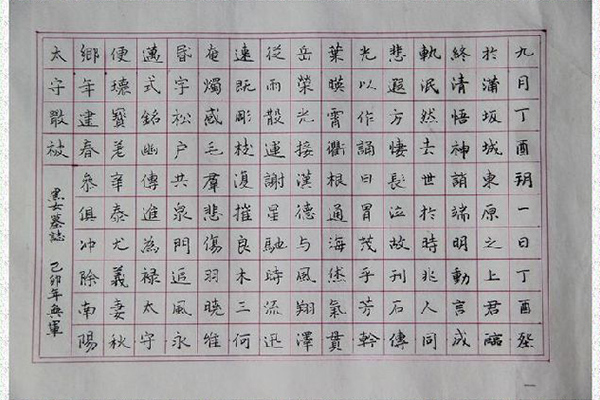 九月丁酉朔一日丁酉葬
於蒲坂城東原之上君臨
終清悟神誚端明動言成
軌泯然去世於時兆人同
悲遐方悽長泣故刊石傳
光以作誦曰冑茂乎芳幹
葉暎霄衢根通海氣貫
岳榮光接漢德与風翔澤
從而散運謝星馳時流迅
速既彫枝復摧良木三何
奄燭感毛羣悲傷羽曉維
昏字松戶共泉門追風永
邁式銘幽傳進為祿太守
便瓌寶羌辛泰尤義妻秋
鄉年建春參俱冲除南陽
太守嚴枝
黑女墓誌 己卯年 軍